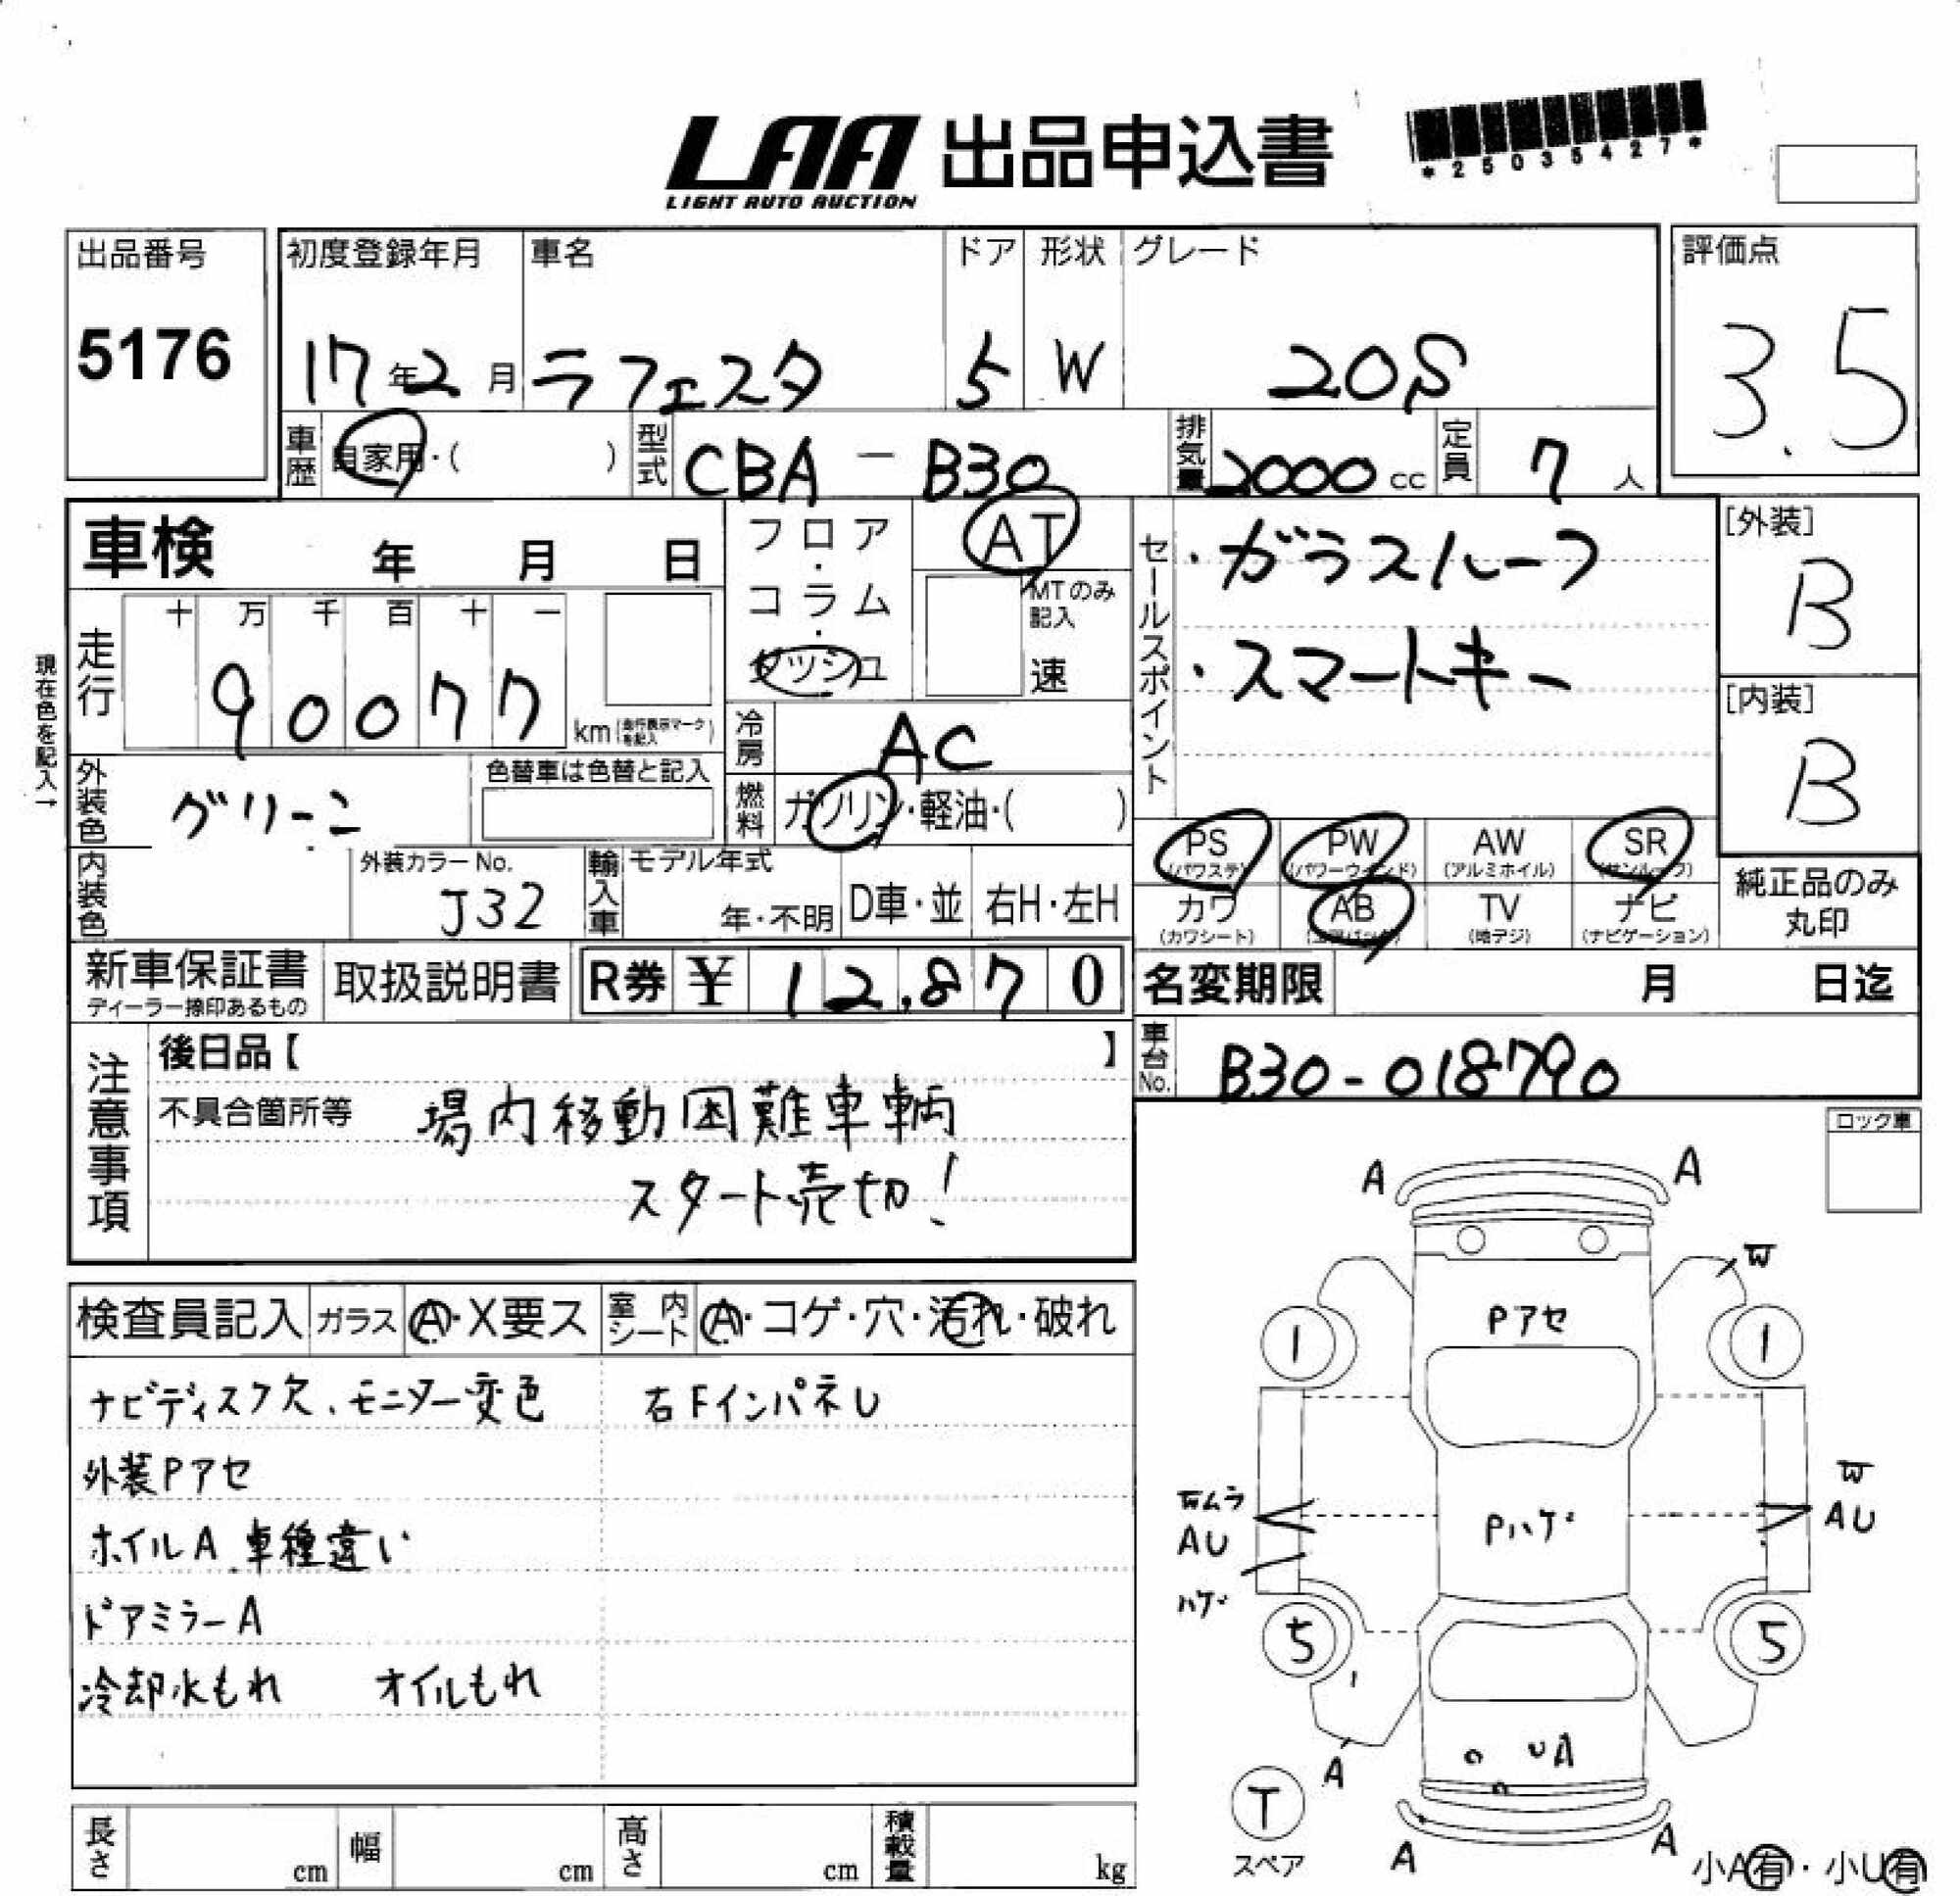 LAA 出品申込書
LIGHT AUTO AUCTION
*25035427*
出品番号
5176
初度登録年月 車名 ドア 形状 グレード
17年2月 ラフェスタ 5 W 20S
評価点
3.5
車歴 自家用・( ) 型式 CBA-B30 排気量 2000cc 定員 7人
車検 年 月 日
フロア・コラム・ダッシュ
AT
MTのみ記入
速
セールスポイント
・ガラスルーフ
・スマートキー
[外装]
B
[内装]
B
現在色を記入→
走行 十 万 千 百 十 一
90077 km(走行表示マークを記入)
冷房 AC
外装色 グリーン 色替車は色替と記入
燃料 ガソリン・軽油・( )
PS (パワステ) PW (パワーウインド) AW (アルミホイル) SR (サンルーフ)
カワ (カワシート) AB (エアバック) TV (地デジ) ナビ (ナビゲーション)
純正品のみ丸印
内装色 外装カラーNo. J32 輸入車 モデル年式 年・不明 D車・並 右H・左H
新車保証書 ディーラー捺印あるもの 取扱説明書 R券 ¥ 12,870
名変期限 月 日迄
車台No. B30-018790
注意事項
後日品【 】
不具合箇所等 場内移動困難車輌
スタート売切!
ロック車
検査員記入 ガラス A・X要ス 室内シート A・コゲ・穴・汚れ・破れ
ナビディスク欠、モニター変色 右FインパネU
外装Pアセ
ホイルA 車種違い
ドアミラーA
冷却水もれ オイルもれ
A A
W
Pアセ
1 1
Wムラ
AU
ハゲ
Pハゲ
W
AU
5 5
UA
A
T
スペア
A A
小A有・小U有
長さ cm 幅 cm 高さ cm 積載量 kg